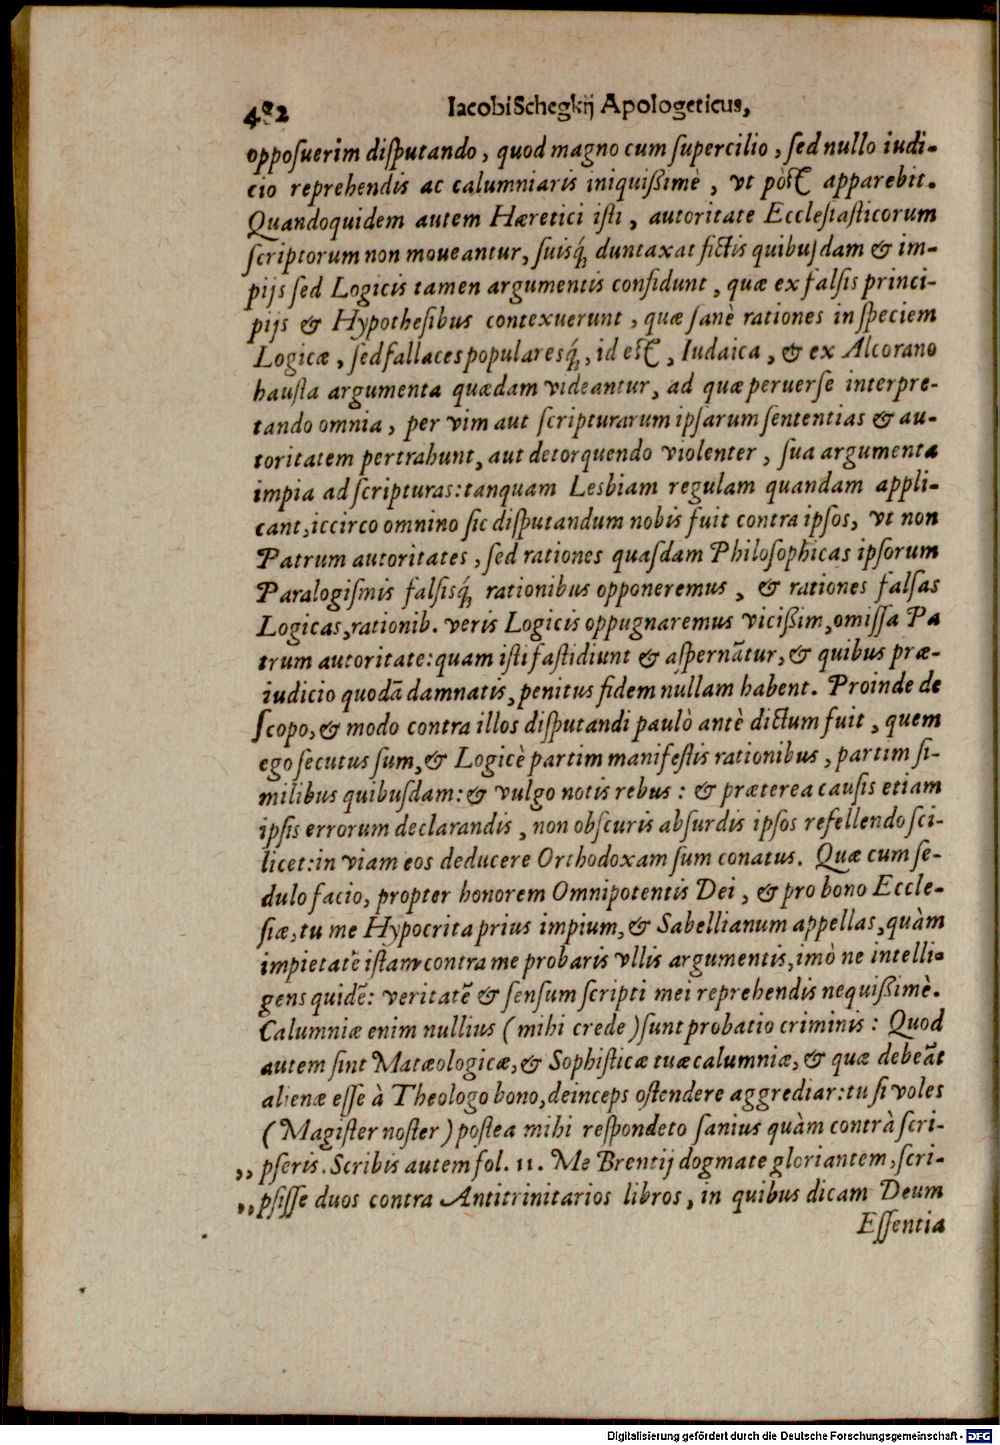 482 Iacobi Schegkij Apologeticus,
opposuerim disputando, quod magno cum supercilio, sed nullo iudi-
cio reprehendis ac calumniaris iniquißimè, vt pòst apparebit.
Quandoquidem autem Hæretici isti, autoritate Ecclesiasticorum
scriptorum non moueantur, suisq́; duntaxat fictis quibusdam & im-
pijs sed Logicis tamen argumentis confidunt, quæ ex falsis princi-
pijs & Hypothesibus contexuerunt, quæ sanè rationes in speciem
Logicæ, sed fallaces popularesq́;, id est, Iudaica, & ex Alcorano
hausta argumenta quædam videantur, ad quæ peruerse interpre-
tando omnia, per vim aut scripturarum ipsarum sententias & au-
toritatem pertrahunt, aut detorquendo violenter, sua argumenta
impia ad scripturas: tanquam Lesbiam regulam quandam appli-
cant, iccirco omnino sic disputandum nobis fuit contra ipsos, vt non
Patrum autoritates, sed rationes quasdam Philosophicas ipsorum
Paralogismis falsisq́; rationibus opponeremus, & rationes falsas
Logicas, rationib. veris Logicis oppugnaremus vicißim, omissa Pa
trum autoritate: quam isti fastidiunt & aspernātur, & quibus præ-
iudicio quodā damnatis, penitus fidem nullam habent. Proinde de
scopo, & modo contra illos disputandi paulò antè dictum fuit, quem
ego secutus sum, & Logicè partim manifestis rationibus, partim si-
milibus quibusdam: & vulgo notis rebus: & præterea causis etiam
ipsis errorum declarandis, non obscuris absurdis ipsos refellendo sci-
licet: in viam eos deducere Orthodoxam sum conatus. Quæ cum se-
dulo facio, propter honorem Omnipotentis Dei, & pro bono Eccle-
siæ, tu me Hypocrita prius impium, & Sabellianum appellas, quàm
impietatē istam contra me probaris vllis argumentis, imò ne intelli-
gens quidē: veritatē & sensum scripti mei reprehendis nequißimè.
Calumniæ enim nullius (mihi crede) sunt probatio criminis: Quod
autem sint Matæologicæ, & Sophisticæ tuæ calumniæ, & quæ debeāt
alienæ esse à Theologo bono, deinceps ostendere aggrediar: tu si voles
(Magister noster) postea mihi respondeto sanius quàm contrà scri-
,, pseris. Scribis autem fol. 11. Me Brentij dogmate gloriantem, scri-
,, psisse duos contra Antitrinitarios libros, in quibus dicam Deum
Essentia
Digitalisierung gefördert durch die Deutsche Forschungsgemeinschaft - DFG